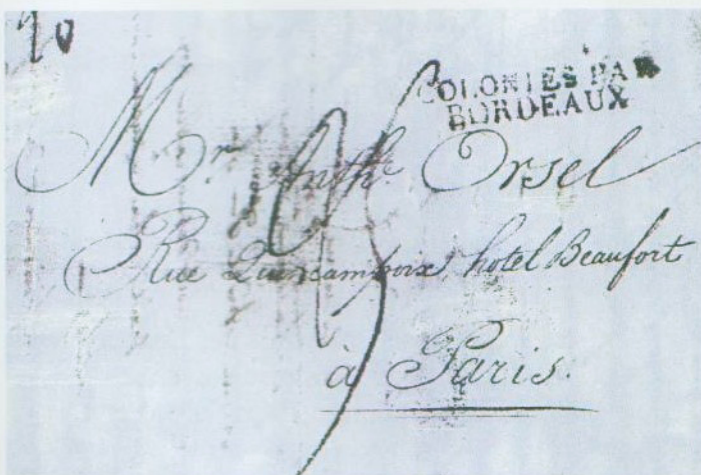 COLONIES PAR
BORDEAUX
Mr. Anth. Orsel
Rue Quincampoix, hotel Beaufort
à Paris.